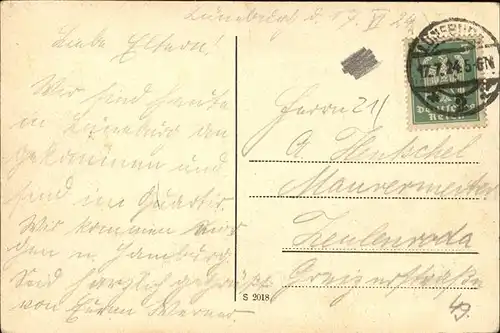 Lüneburg d. 17. VI 24
Liebe Eltern!
Wir sind heute
in Lüneburg an
gekommen und
sind im Quartir.
Wir kommen mor
gen n. Hamburg.
Seid herzlich gegrüßt
von Eurem Werner
LÜNEBURG
17.7.24.5-6N
Deutsches
Reich
Herrn
A. Hentschel
Maurermeister
Zeulenroda
Greizerstraße
49.
S 2018